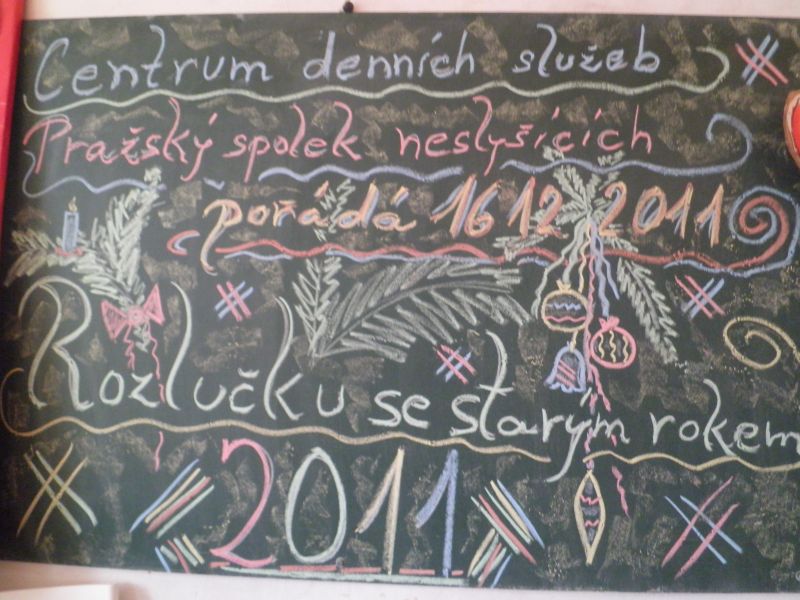 Centrum denních služeb
Pražský spolek neslyšících
pořádá 16 12 2011
Rozlučku se starým rokem
2011